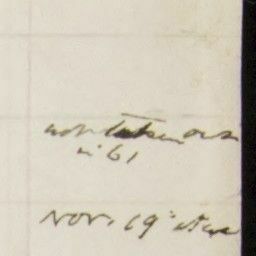 not taken over
in 61
Nov. 19